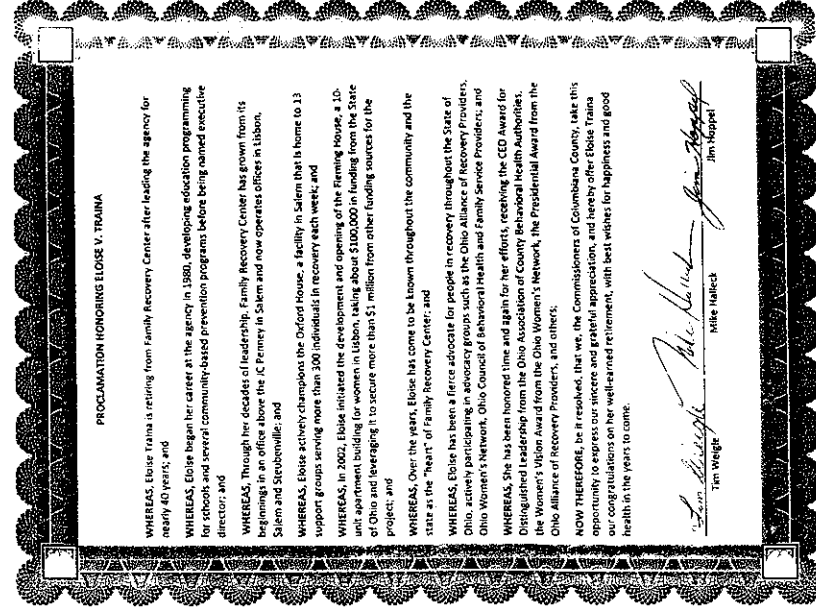 PROCLAMATION HONORING ELOISE V. TRAINA
WHEREAS, Eloise Traina is retiring from Family Recovery Center after leading the agency for
nearly 40 years; and
WHEREAS, Eloise began her career at the agency in 1980, developing education programming
for schools and several community-based prevention programs before being named executive
director; and
WHEREAS, Through her decades of leadership, Family Recovery Center has grown from its
beginnings in an office above the JC Penney in Salem and now operates offices in Lisbon,
Salem and Steubenville; and
WHEREAS, Eloise actively champions the Oxford House, a facility in Salem that is home to 13
support groups serving more than 300 individuals in recovery each week; and
WHEREAS, In 2002, Eloise initiated the development and opening of the Fleming House, a 10-
unit apartment building for women in Lisbon, taking about $100,000 in funding from the State
of Ohio and leveraging it to secure more than $1 million from other funding sources for the
project; and
WHEREAS, Over the years, Eloise has come to be known throughout the community and the
state as the "heart" of Family Recovery Center; and
WHEREAS, Eloise has been a fierce advocate for people in recovery throughout the State of
Ohio, actively participating in advocacy groups such as the Ohio Alliance of Recovery Providers,
Ohio Women's Network, Ohio Council of Behavioral Health and Family Service Providers; and
WHEREAS, She has been honored time and again for her efforts, receiving the CEO Award for
Distinguished Leadership from the Ohio Association of County Behavioral Health Authorities,
the Women's Vision Award from the Ohio Women's Network, the Presidential Award from the
Ohio Alliance of Recovery Providers, and others;
NOW THEREFORE, be it resolved, that we, the Commissioners of Columbiana County, take this
opportunity to express our sincere and grateful appreciation, and hereby offer Eloise Traina
our congratulations on her well-earned retirement, with best wishes for happiness and good
health in the years to come.
Tim Weigle Mike Halleck Jim Hoppel
Tim Weigle Mike Halleck Jim Hoppel